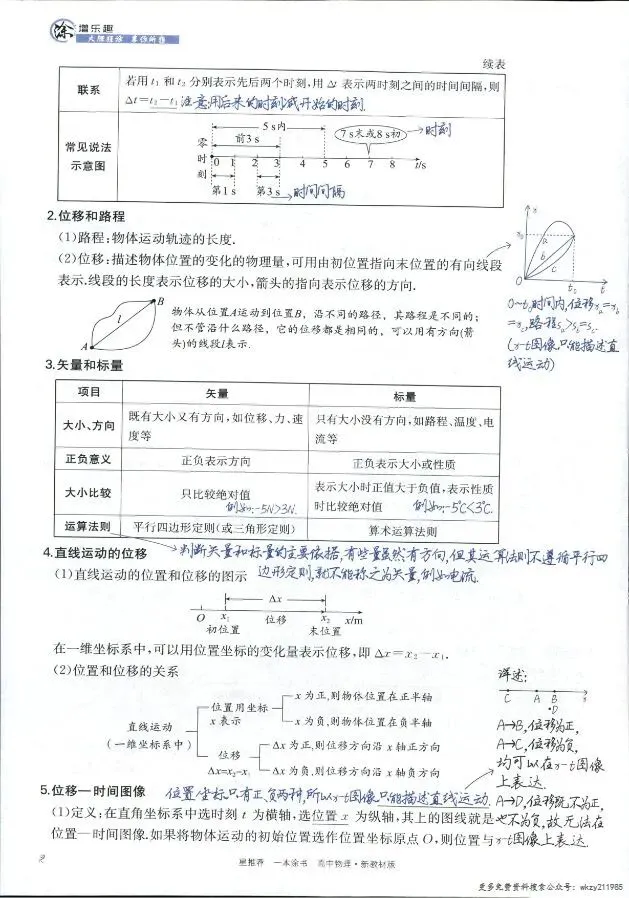 涂 增乐趣
大胆狂涂 算你所能
续表
联系 若用 t₁ 和 t₂ 分别表示先后两个时刻,用 Δt 表示两时刻之间的时间间隔,则
Δt=t₂−t₁ 注意:用后来的时刻减开始的时刻.
常见说法
示意图
5 s内
前3 s
7 s末或8 s初 →时刻
零时刻
0 1 2 3 4 5 6 7 8 t/s
第1 s 第3 s →时间间隔
2.位移和路程
(1)路程:物体运动轨迹的长度.
(2)位移:描述物体位置的变化的物理量,可用由初位置指向末位置的有向线段
表示.线段的长度表示位移的大小,箭头的指向表示位移的方向.
x
x₀
a
b
c
O t₀ t
0~t₀时间内,位移xₐ=x_b
=x_c,路程sₐ>s_b=s_c.
(x-t图像只能描述直
线运动)
A l B
物体从位置A运动到位置B，沿不同的路径，其路程是不同的；
但不管沿什么路径，它的位移都是相同的，可以用有方向(箭
头)的线段l表示.
3.矢量和标量
项目 矢量 标量
大小、方向 既有大小又有方向,如位移、力、速度等 只有大小没有方向,如路程、温度、电流等
正负意义 正负表示方向 正负表示大小或性质
大小比较 只比较绝对值 例如:-5N>3N. 表示大小时正值大于负值,表示性质时比较绝对值 例如:-5℃<3℃.
运算法则 平行四边形定则(或三角形定则) 算术运算法则
4.直线运动的位移 →判断矢量和标量的主要依据,有些量虽然有方向,但其运算法则不遵循平行四
(1)直线运动的位置和位移的图示 边形定则,就不能称之为矢量,例如电流.
Δx
O x₁ 位移 x₂ x/m
初位置 末位置
在一维坐标系中,可以用位置坐标的变化量表示位移,即 Δx=x₂−x₁.
(2)位置和位移的关系
直线运动
(一维坐标系中)
位置用坐标
x 表示
x 为正,则物体位置在正半轴
x 为负,则物体位置在负半轴
位移
Δx=x₂-x₁
Δx 为正,则位移方向沿 x 轴正方向
Δx 为负,则位移方向沿 x 轴负方向
详述:
C A B x
D
A→B,位移为正,
A→C,位移为负,
均可以在x-t图像
上表达.
A→D,位移既不为正,
也不为负,故无法在
x-t图像上表达.
5.位移—时间图像 位置坐标只有正负两种,所以x-t图像只能描述直线运动.
(1)定义:在直角坐标系中选时刻 t 为横轴,选位置 x 为纵轴,其上的图线就是
位置—时间图像.如果将物体运动的初始位置选作位置坐标原点 O,则位置与
2
星推荐 一本涂书 高中物理·新教材版
更多免费资料搜索公众号：wkzy211985